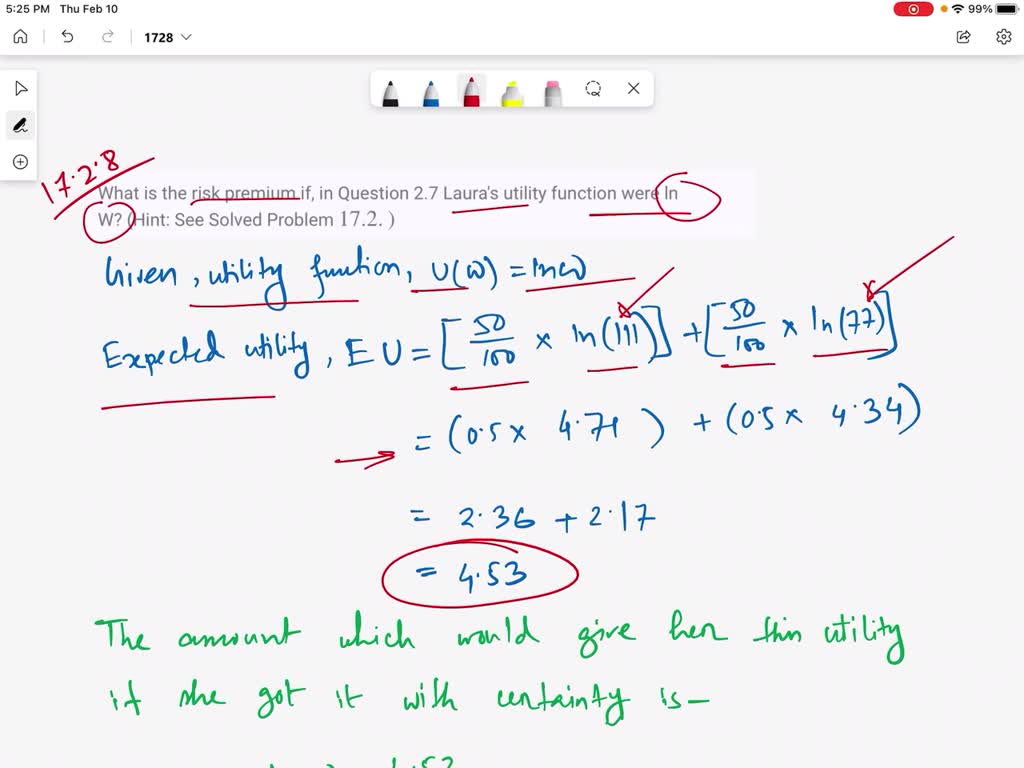 5:25 PM Thu Feb 10
99%
1728
17.2.8
What is the risk premium if, in Question 2.7 Laura's utility function were ln
W? (Hint: See Solved Problem 17.2. )
Given, utility function, U(W) = lnW
Expected utility, EU = [50/100 × ln(111)] + [50/100 × ln(77)]
= (0.5 × 4.71) + (0.5 × 4.34)
= 2.36 + 2.17
= 4.53
The amount which would give her this utility
if she got it with certainty is—